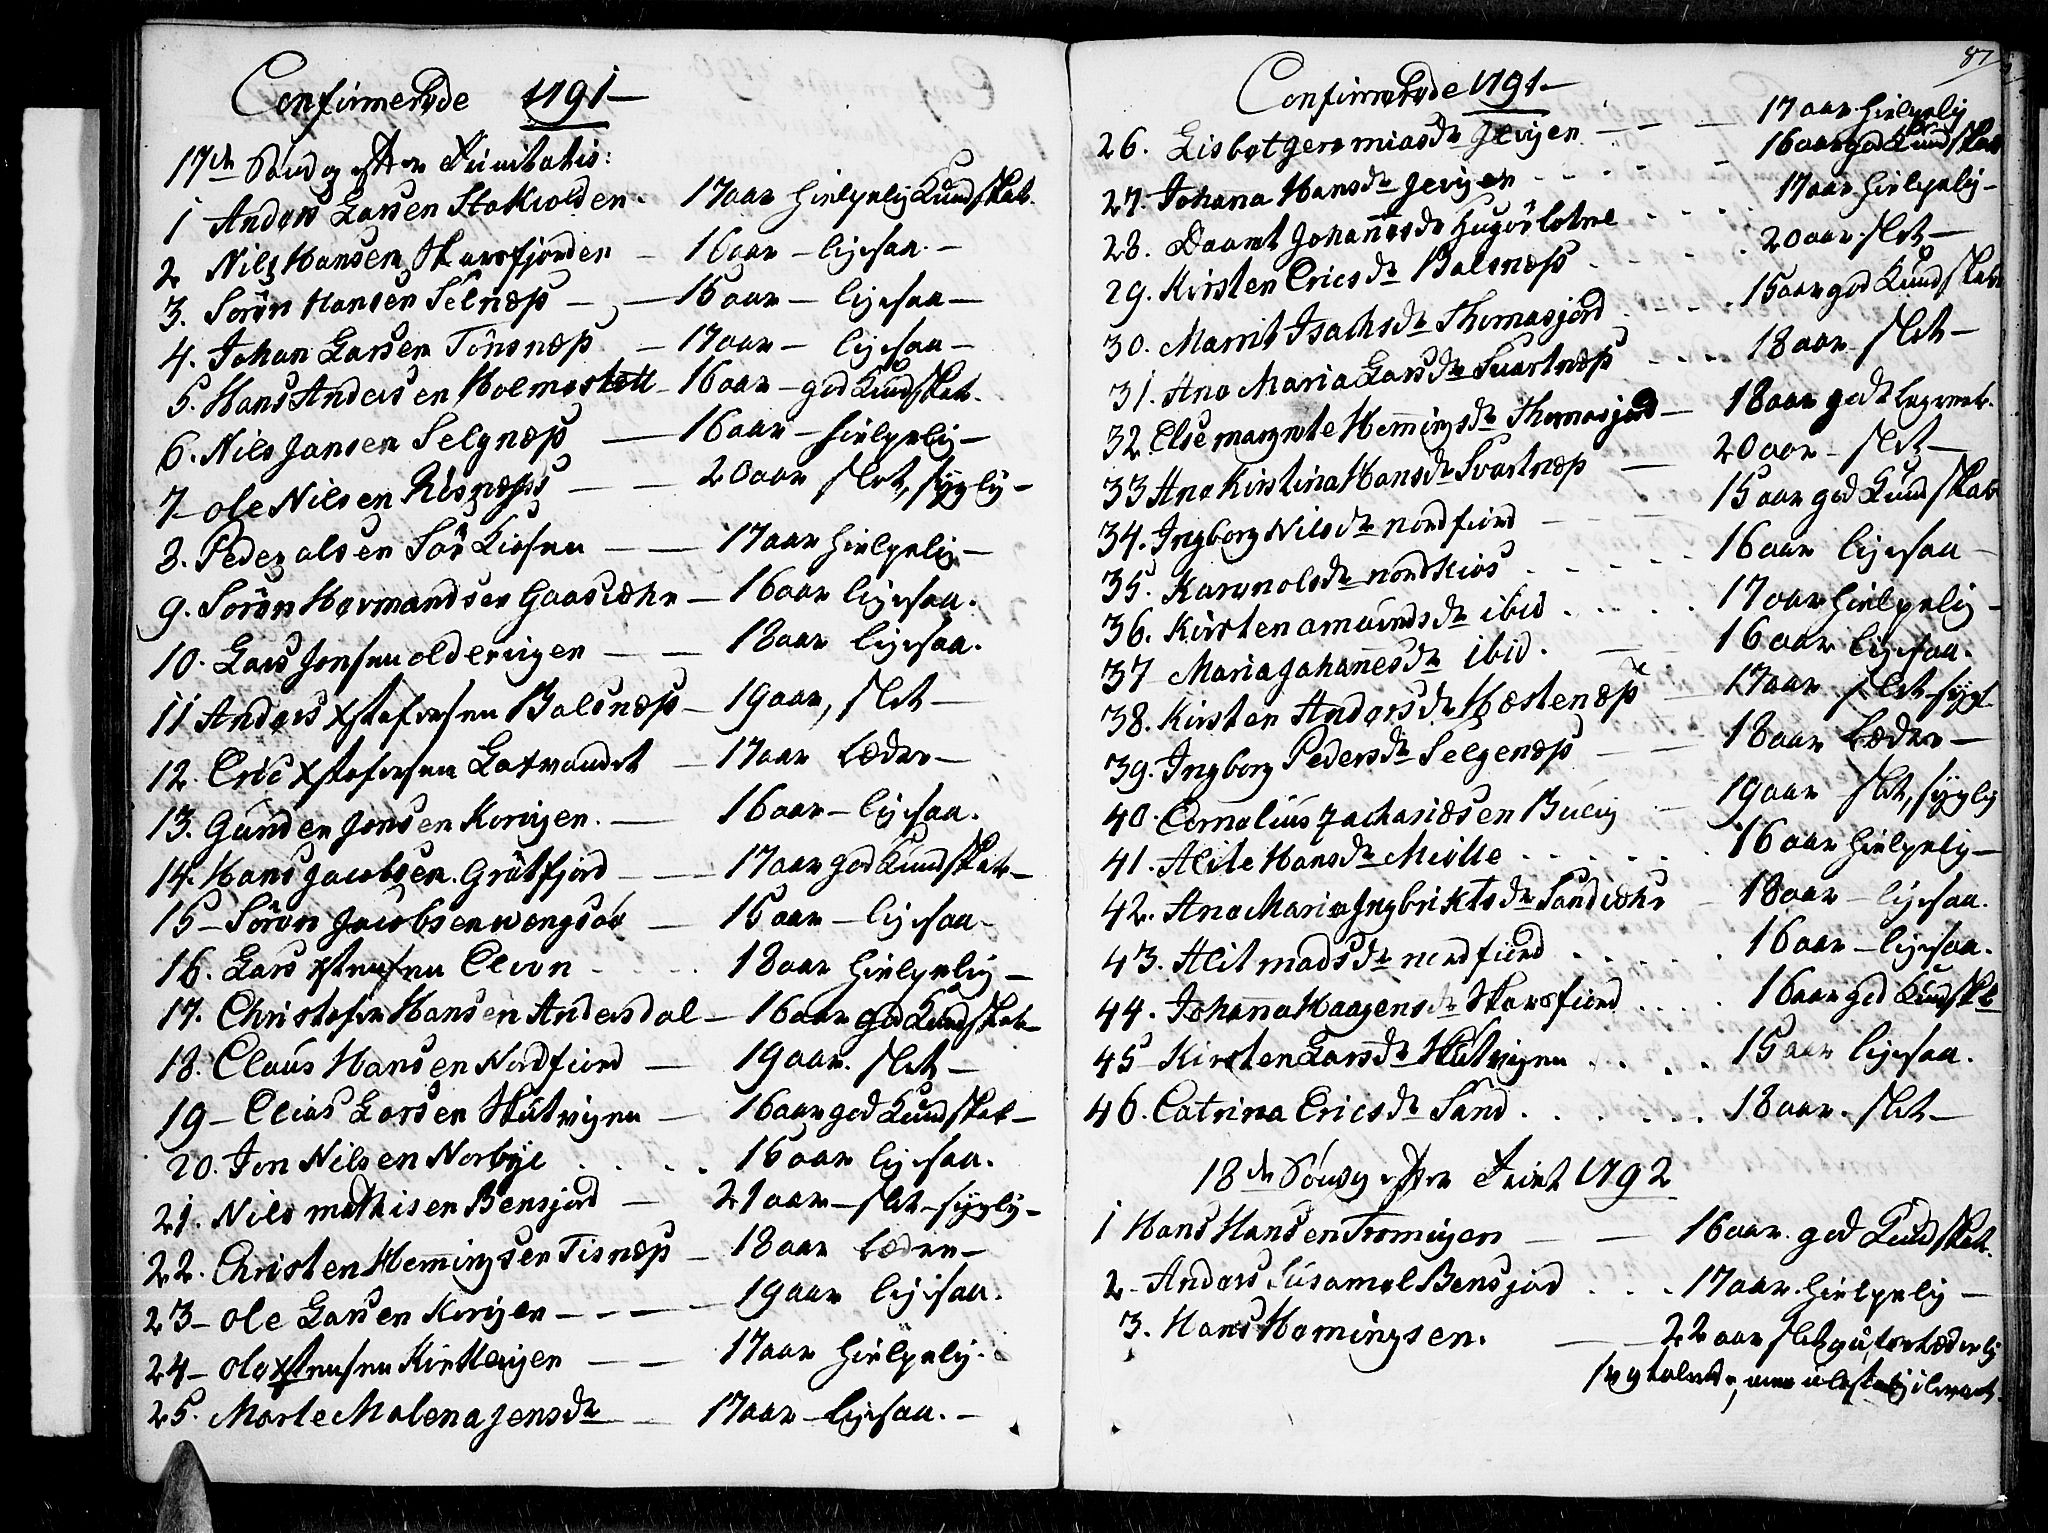 Confirmerede 1791 —
17de Sönd. efter Trinitatis:
1 Anders Larsen Stakvolden - 17 aar hielpelig Kundskab.
2 Nils Hansen Skarsfjorden - 16 aar - ligesaa. -
3. Sören Hansen Selnæss - - 15 aar - ligesaa -
4. Johan Larsen Tönsnæss - 17 aar - ligesaa -
5. Hans Andersen Holmeslett - 16 aar - god Kundskab.
6. Nils Jansen Selgnæss - 16 aar - hielpelig -
7- Ole Nilsen Risnæss - - 20 aar slet, sygelig -
8. Peder Olsen Sör Kiosen - - 17 aar hielpelig -
9. Sören Hermandsen Gaasvær - 16 aar ligesaa.
10. Lars Jonsen Oldervigen - - 18 aar ligesaa.
11 Anders Xstofersen Balsnæss - 19 aar, slet -
12 Eric Xstofersen Laxvandet - 17 aar bædre -
13. Gunder Jonsen Korvigen. - 16 aar - ligesaa.
14. Hans Jacobsen Grötfjord - - 17 aar god Kundskab -
15 - Sören Jacobsen Wengsöe - 15 aar - ligesaa -
16. Lars Xstensen - 18 aar hielpelig -
17. Christofer Hansen Andersdal - 16 aar god Kundskab -
18. Claus Hansen Nordfiord - 19 aar. slet -
19 - Elias Larsen Skutvigen - 16 aar god Kundskab -
20. Jon Nilsen Norbye . . . . 16 aar ligesaa.
21. Nils Mathisen Bensjord - 21 aar - slet - sygelig -
22. Christen Hemingsen Tisnæss - 18 aar bædre -
23 - Ole Larsen Korvigen - - - 19 aar ligesaa.
24 - Ole Xstensen - - 17 aar hielpelig.
25. Marte Malena Jensdr - 17 aar - ligesaa. -
87
Confirmerede 1791 -
26. Lisbet Jeremiasdr Jevigen - - - 17 aar hielpelig
27. Johana Hansdr Jevigen - - - - 16 aar god Kundskab
28. Daaret Johannesdr . . . . 17 aar hielpelig -
29. Kirsten Ericsdr Balsnæss . . . . 20 aar. slet -
30. Marrit Isachsdr Thomasjord - - - 15 aar god Kundskab
31. Ane Maria Larsdr Svartnæss - - - 18 aar slet -
32 Else Margrete Hemingsdr Thomasjord - 18 aar godt
33 Ane Kirstina Hansdr Svartnæss - 20 aar - slet -
34. Ingborg Nilsdr Nordfiord - - - 15 aar god Kundskab
35. Karen Olsdr Nordkios . . . . 16 aar ligesaa -
36. Kirsten Amundsdr ibid . . . . 17 aar hielpelig -
37 Maria Johannesdr ibid. - - 16 aar ligesaa.
38. Kirsten Andersdr Hæstenæss - 17 aar slet - syg
39. Ingborg Pedersdr Selgenæss - - 18 aar bædre -
40. Cornelius Zachariæsen - 19 aar slet, sygelig
41. Alite Hansdr . . . . . . 16 aar hielpelig -
42. Ane Maria Ingbriktsdr Sandvær - 18 aar - ligesaa.
43. Alit Madsdr Nordfiord . . . . . 16 aar - ligesaa.
44. Johanna Haagensdr Skarsfiord . . . 16 aar god Kundskab
45 - Kirsten Larsdr Skutvigen . . . . 15 aar ligesaa.
46. Catrina Ericsdr Sand . . . . . . 18 aar. slet -
18de Söndg efter Trinit 1792
1 Hans Hansen Tromvigen - - 16 aar. god Kundskab.
2 - Anders Susamel Bensjord . . . 17 aar. hielpelig -
3. Hans Hemingsen. - - 22 aar slet